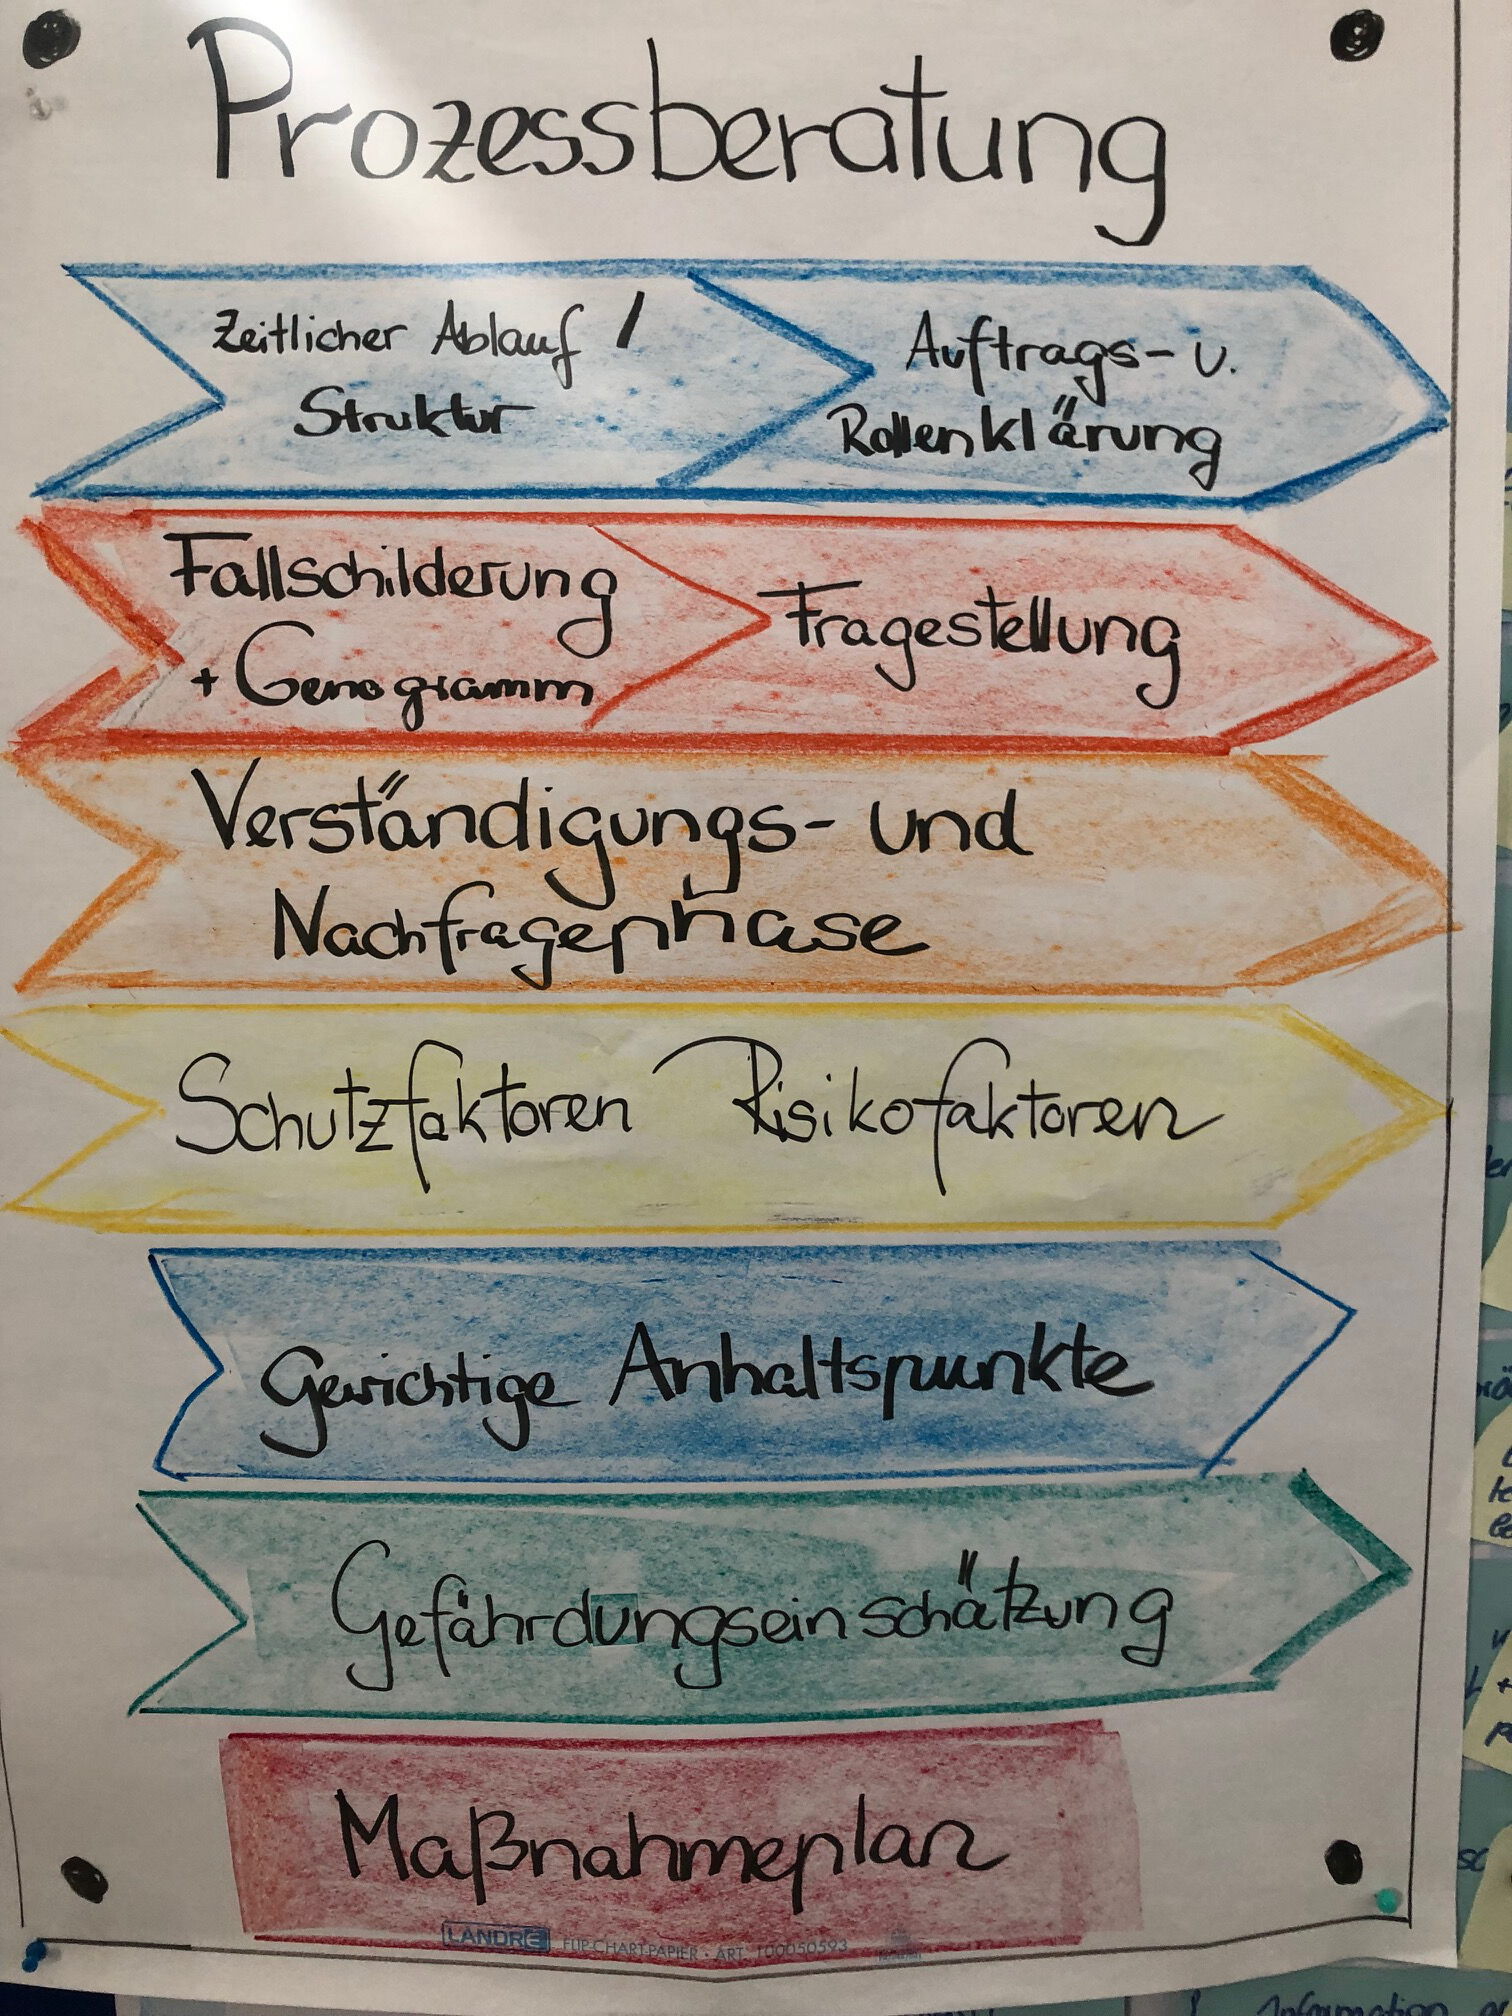 Prozessberatung
Zeitlicher Ablauf /
Struktur
Auftrags- u.
Rollenklärung
Fallschilderung
+ Genogramm
Fragestellung
Verständigungs- und
Nachfragephase
Schutzfaktoren Risikofaktoren
Gewichtige Anhaltspunkte
Gefährdungseinschätzung
Maßnahmeplan
LANDRÉ FLIP-CHART-PAPIER · ART. 100050593
Information